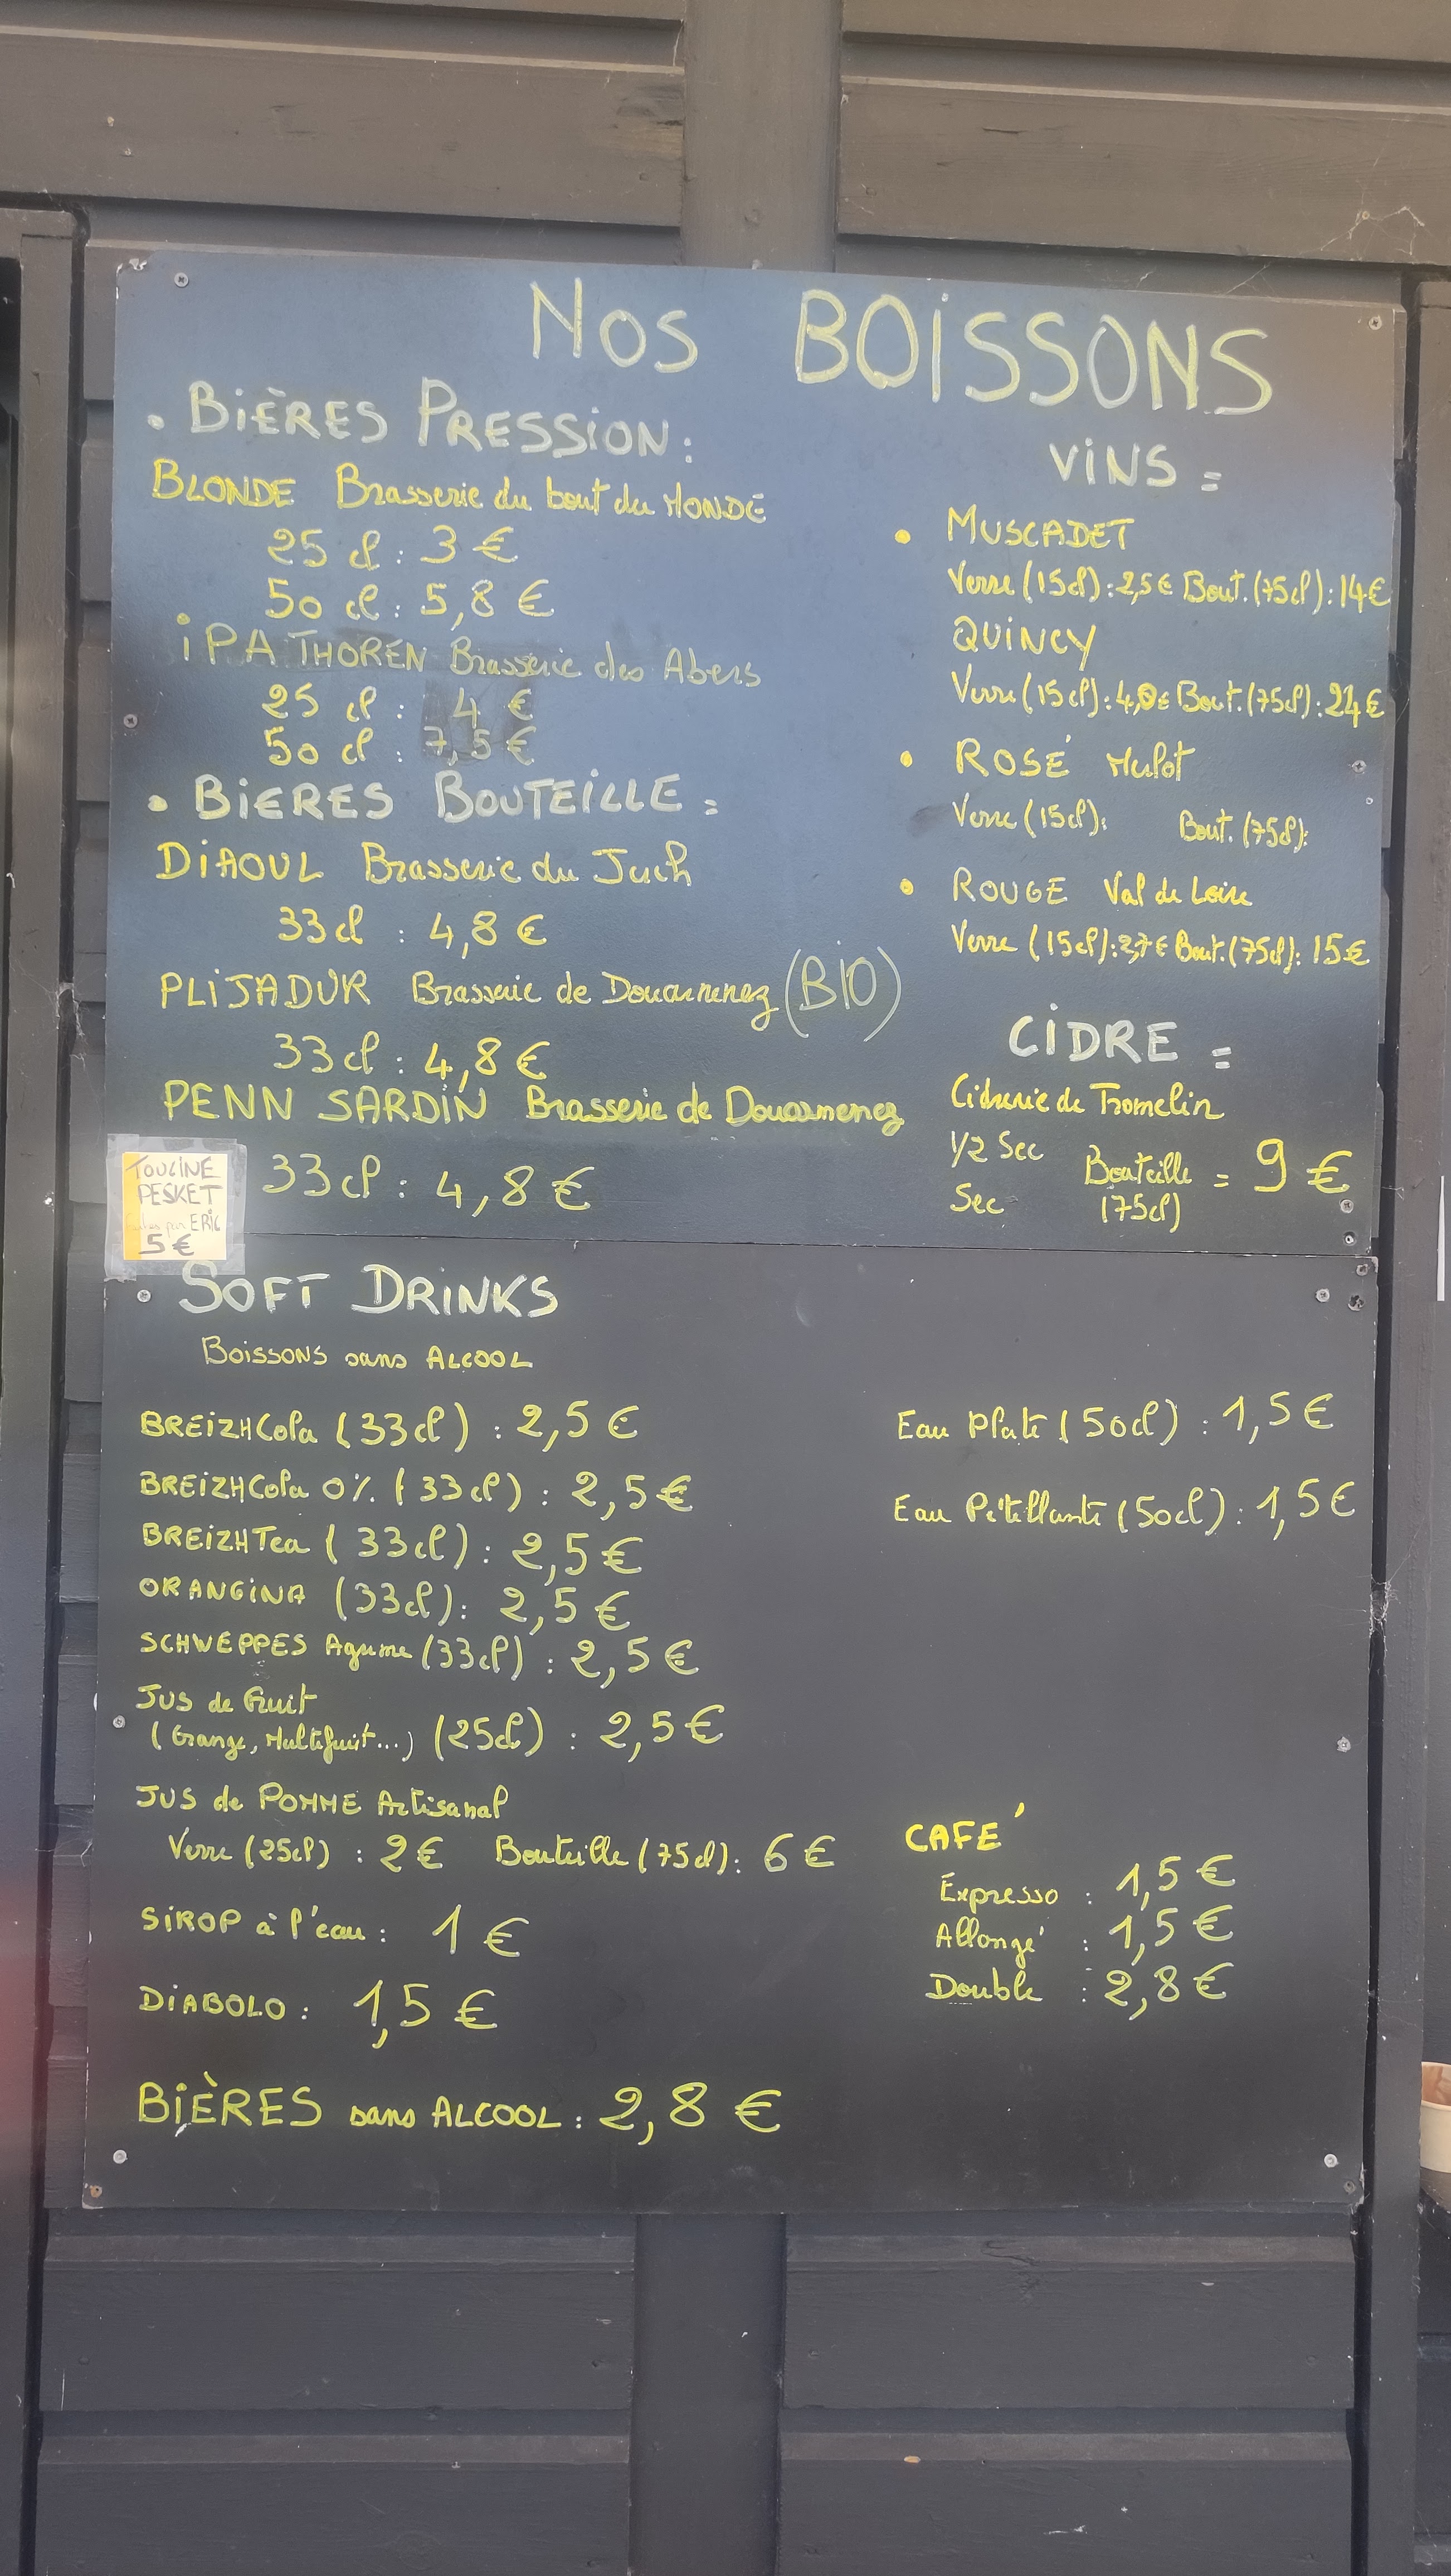 Nos BOiSSONS
• BiÈRES PRESSiON :
BLONDE Brasserie du bout du MONDE
25 cl : 3 €
50 cl : 5,8 €
iPA THOREN Brasserie des Abers
25 cl : 4 €
50 cl : 7,5 €
• BiERES BOUTEiLLE :
DiAOUL Brasserie du Juch
33cl : 4,8 €
PLiJADUR Brasserie de Douarnenez (BIO)
33cl : 4,8 €
PENN SARDiN Brasserie de Douarnenez
33cl : 4,8 €
TOULINE
PESKET
par ERIC
5 €
ViNS :
• MUSCADET
Verre (15cl) : 2,5 € Bout. (75cl) : 14 €
QUiNCY
Verre (15cl) : 4,0 € Bout. (75cl) : 24 €
• ROSÉ Mulot
Verre (15cl) : Bout. (75cl) :
• ROUGE Val de Loire
Verre (15cl) : 2,7 € Bout. (75cl) : 15 €
CiDRE :
Cidrerie de Tromelin
1/2 Sec
Sec
Bouteille
(75cl)
= 9 €
• SOFT DRiNKS
Boissons sans ALCOOL
BREiZHCola (33cl) : 2,5 €
BREiZHCola 0% (33cl) : 2,5 €
BREiZHTea (33cl) : 2,5 €
ORANGiNA (33cl) : 2,5 €
SCHWEPPES Agrume (33cl) : 2,5 €
JUS de Fruit
(Orange, Multifruit...) (25cl) : 2,5 €
JUS de POMME Artisanal
Verre (25cl) : 2 € Bouteille (75cl) : 6 €
SiROP à l'eau : 1 €
DiABOLO : 1,5 €
BiÈRES sans ALCOOL : 2,8 €
Eau Plate (50cl) : 1,5 €
Eau Pétillante (50cl) : 1,5 €
CAFÉ
Expresso : 1,5 €
Allongé : 1,5 €
Double : 2,8 €